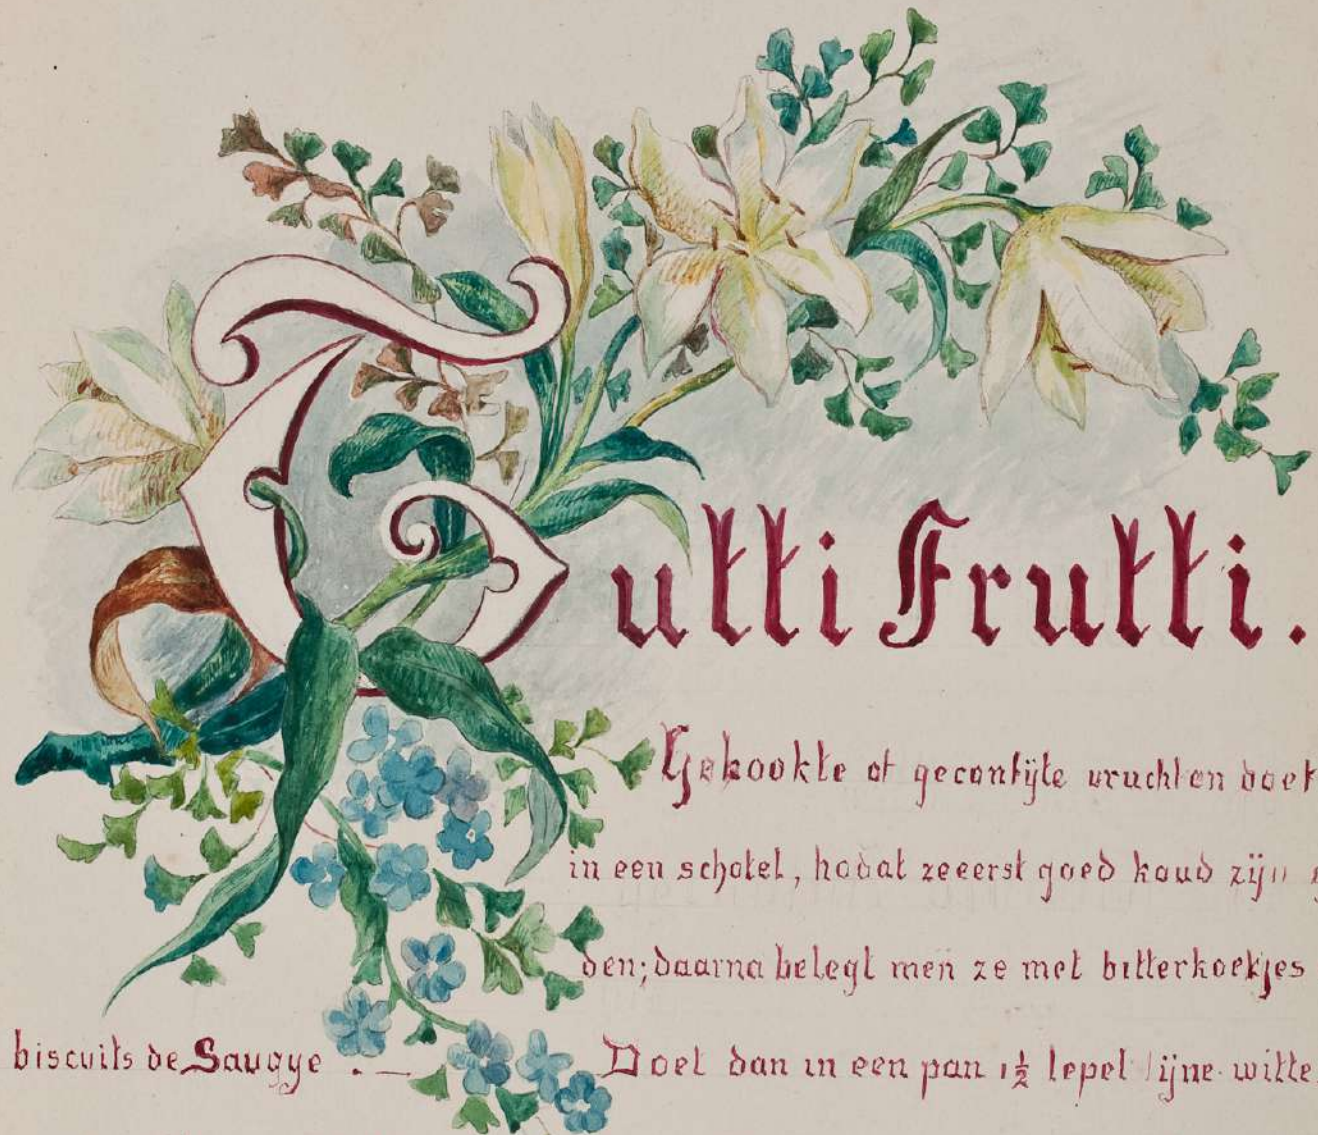 Tutti Frutti.
Gekookte of geconfijte vruchten doet
in een schotel, nadat ze eerst goed koud zijn
den; daarna belegt men ze met bitterkoekjes
biscuits de Savoye . — Doet dan in een pan 1½ lepel fijne witte